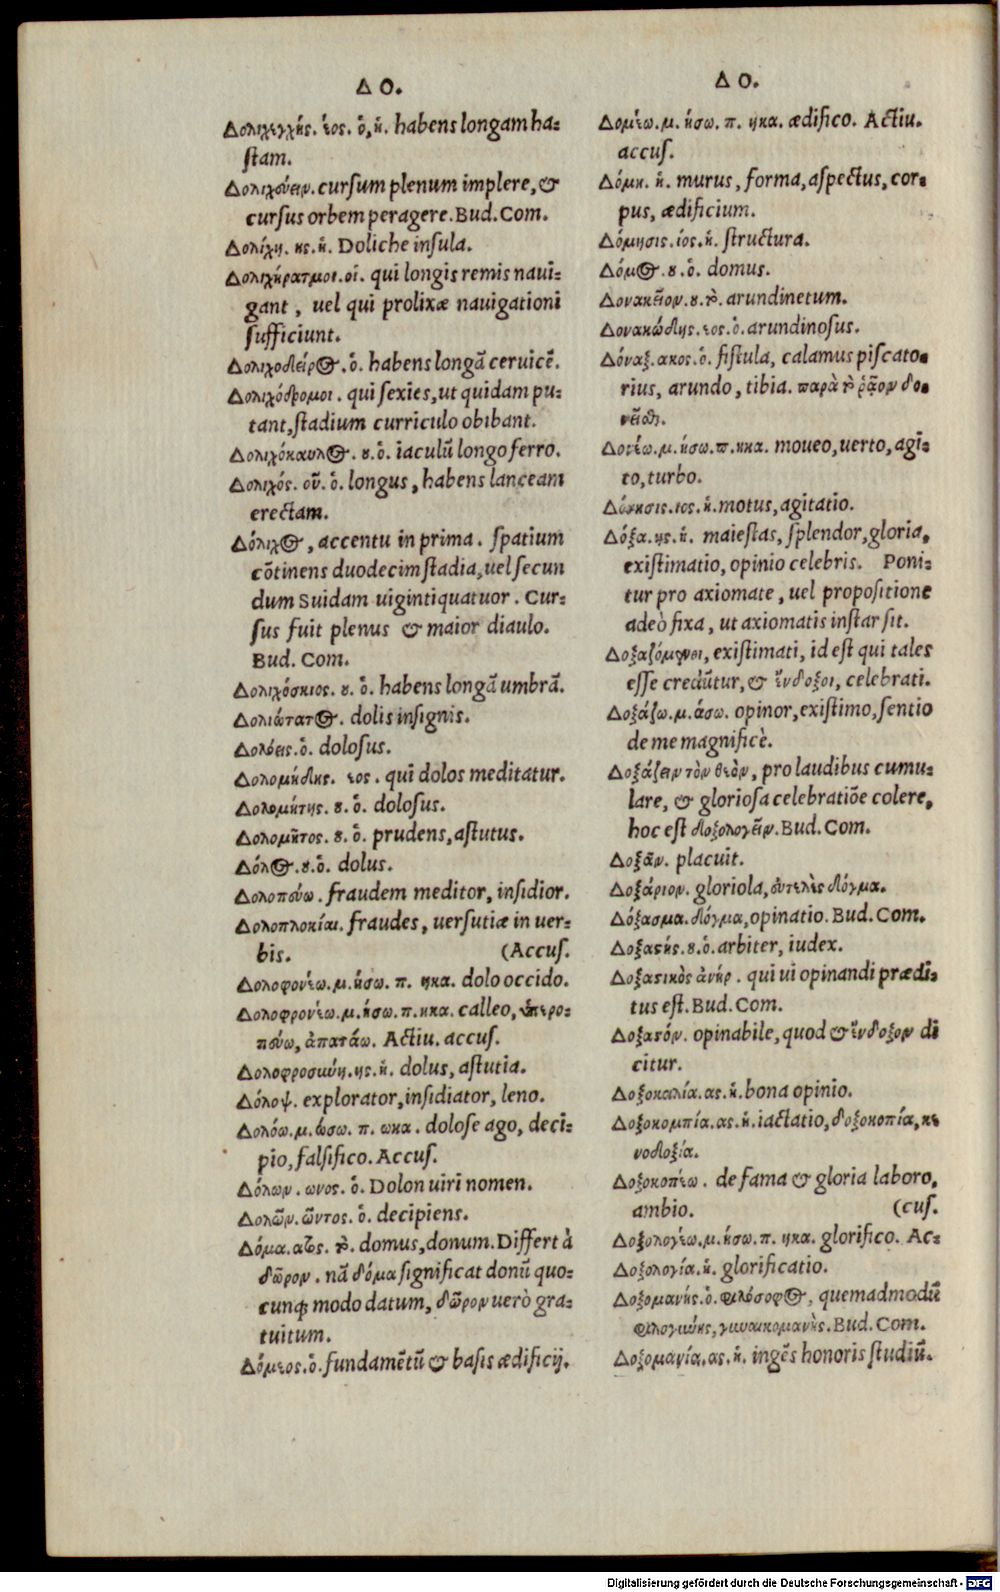 Δ Ο.
Δολιχεγχής. έος. ὁ, ἡ. habens longam ha-
stam.
Δολιχεύειν. cursum plenum implere, &
cursus orbem peragere. Bud. Com.
Δολίχη. ης. ἡ. Doliche insula.
Δολιχήρατμοι. οἱ. qui longis remis naui-
gant, uel qui prolixæ nauigationi
sufficiunt.
Δολιχοδείρος. ὁ. habens longã ceruicẽ.
Δολιχόδρομοι. qui sexies, ut quidam pu-
tant, stadium curriculo obibant.
Δολιχόκαυλος. ου. ὁ. iaculũ longo ferro.
Δολιχός. οῦ. ὁ. longus, habens lanceam
erectam.
Δόλιχος, accentu in prima. spatium
cõtinens duodecim stadia, uel secun
dum Suidam uigintiquatuor. Cur-
sus fuit plenus & maior diaulo.
Bud. Com.
Δολιχόσκιος. ου. ὁ. habens longã umbrã.
Δολιώτατος. dolis insignis.
Δολόεις. ὁ. dolosus.
Δολομήδης. εος. qui dolos meditatur.
Δολομήτης. ου. ὁ. dolosus.
Δολομῆτος. ου. ὁ. prudens, astutus.
Δόλος. ου. ὁ. dolus.
Δολοπεύω. fraudem meditor, insidior.
Δολοπλοκίαι. fraudes, uersutiæ in uer-
bis. (Accus.
Δολοφονέω. μ. ήσω. π. ηκα. dolo occido.
Δολοφρονέω. μ. ήσω. π. ηκα. calleo, ὑπερο-
πεύω, ἀπατάω. Actiu. accus.
Δολοφροσύνη. ης. ἡ. dolus, astutia.
Δόλοψ. explorator, insidiator, leno.
Δολόω. μ. ώσω. π. ωκα. dolose ago, deci-
pio, falsifico. Accus.
Δόλων. ωνος. ὁ. Dolon uiri nomen.
Δολῶν. ῶντος. ὁ. decipiens.
Δόμα. ατος. τὸ. domus, donum. Differt à
δῶρον. nã δόμα significat donũ quo-
cunq; modo datum, δῶρον uerò gra-
tuitum.
Δόμεος. ὁ. fundamẽtũ & basis ædificij.
Δ Ο.
Δομέω. μ. ήσω. π. ηκα. ædifico. Actiu.
accus.
Δόμη. ἡ. murus, forma, aspectus, cor-
pus, ædificium.
Δόμησις. ιος. ἡ. structura.
Δόμος. ου. ὁ. domus.
Δονακεῖον. ου. τὸ. arundinetum.
Δονακώδης. εος. ὁ. arundinosus.
Δόναξ. ακος. ὁ. fistula, calamus piscato-
rius, arundo, tibia. παρὰ τὸ ῥᾷον δο-
νεῖσθαι.
Δονέω. μ. ήσω. π. ηκα. moueo, uerto, agi-
to, turbo.
Δόνησις. ιος. ἡ. motus, agitatio.
Δόξα. ης. ἡ. maiestas, splendor, gloria,
existimatio, opinio celebris. Poni-
tur pro axiomate, uel propositione
adeò fixa, ut axiomatis instar sit.
Δοξαζόμενοι, existimati, id est qui tales
esse credũtur, & ἔνδοξοι, celebrati.
Δοξάζω. μ. άσω. opinor, existimo, sentio
de me magnificè.
Δοξάζειν τὸν θεὸν, pro laudibus cumu-
lare, & gloriosa celebratiõe colere,
hoc est δοξολογεῖν. Bud. Com.
Δοξᾶν. placuit.
Δοξάριον. gloriola, εὐτελὲς δόγμα.
Δόξασμα. δόγμα, opinatio. Bud. Com.
Δοξαστής. ου. ὁ. arbiter, iudex.
Δοξαστικὸς ἀνήρ. qui ui opinandi prædi-
tus est. Bud. Com.
Δοξαστόν. opinabile, quod & ἔνδοξον di
citur.
Δοξοκαλία. ας. ἡ. bona opinio.
Δοξοκομπία. ας. ἡ. iactatio, δοξοκοπία, κε
νοδοξία.
Δοξοκοπέω. de fama & gloria laboro,
ambio. (cus.
Δοξολογέω. μ. ήσω. π. ηκα. glorifico. Ac-
Δοξολογία. ἡ. glorificatio.
Δοξομανής. ὁ. φιλόσοφος, quemadmodũ
φιλογύνης, γυναικομανὴς. Bud. Com.
Δοξομανία. ας. ἡ. ingẽs honoris studiũ.
Digitalisierung gefördert durch die Deutsche Forschungsgemeinschaft - DFG